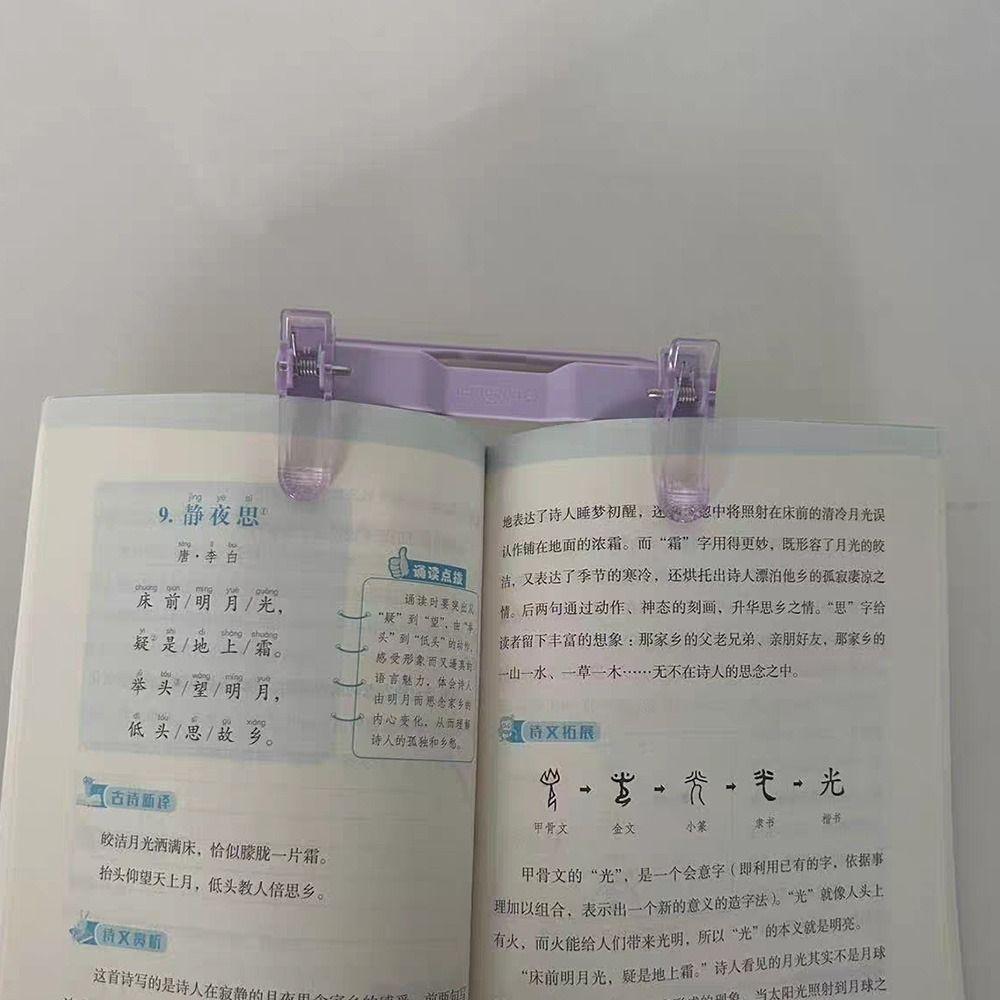 jìng yè sī
9. 静夜思①
táng lǐ bái
唐·李白
chuáng qián míng yuè guāng
床前/明月/光，
yí shì dì shàng shuāng
疑②是/地上/霜。
jǔ tóu wàng míng yuè
举头/望/明月，
dī tóu sī gù xiāng
低头/思/故乡。
诵读点拨
诵读时要突出从
“疑”到“望”，由“举
头”到“低头”的动作，
感受形象而又逼真的
语言魅力，体会诗人
由明月而思念家乡的
内心变化，从而理解
诗人的孤独和乡愁。
古诗新译
皎洁月光洒满床，恰似朦胧一片霜。
抬头仰望天上月，低头教人倍思乡。
诗文赏析
这首诗写的是诗人在寂静的月夜思念家乡的感受。前两句写
地表达了诗人睡梦初醒，还 中将照射在床前的清冷月光误
认作铺在地面的浓霜。而“霜”字用得更妙，既形容了月光的皎
洁，又表达了季节的寒冷，还烘托出诗人漂泊他乡的孤寂凄凉之
情。后两句通过动作、神态的刻画，升华思乡之情。“思”字给
读者留下丰富的想象：那家乡的父老兄弟、亲朋好友，那家乡的
一山一水、一草一木……无不在诗人的思念之中。
诗文拓展
光
甲骨文 金文 小篆 隶书 楷书
甲骨文的“光”，是一个会意字（即利用已有的字，依据事
理加以组合，表示出一个新的意义的造字法）。“光”就像人头上
有火，而火能给人们带来光明，所以“光”的本义就是明亮。
“床前明月光，疑是地上霜。”诗人看见的月光其实不是月球
的现象，当太阳光照射到月球之